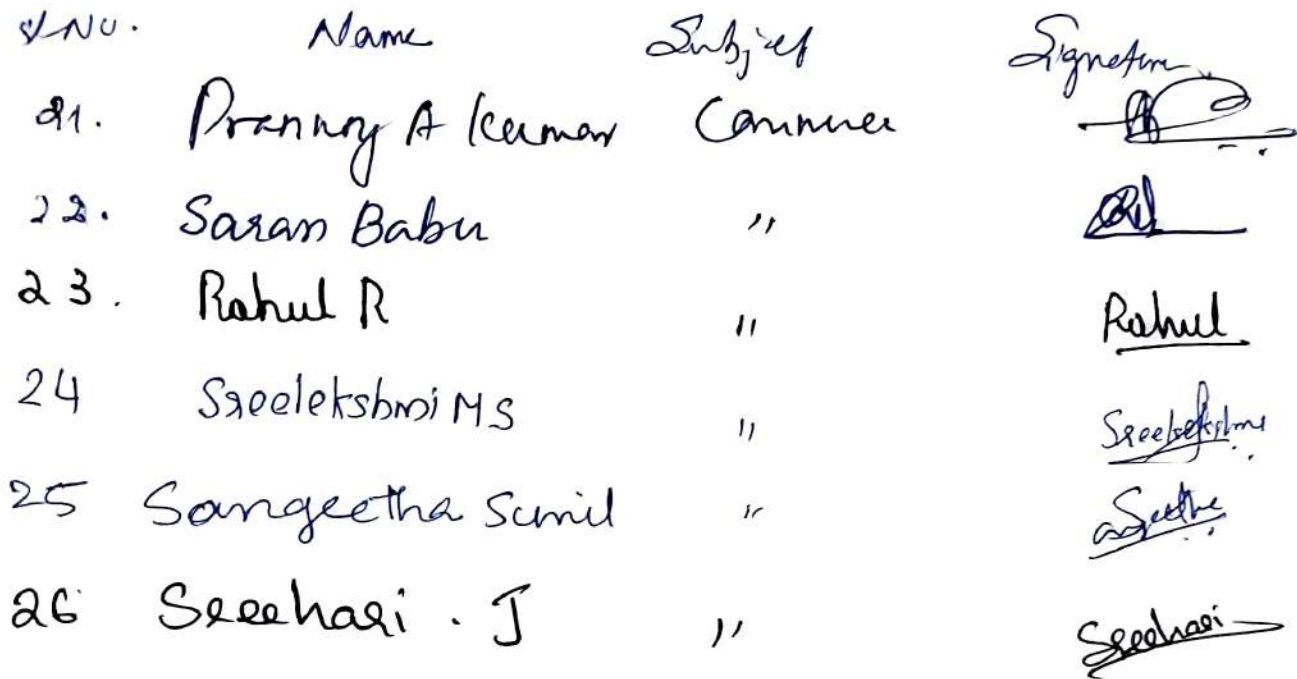 Sl.No. Name Subject Signature
21. Prannoy A Kumar Commerce
22. Saran Babu "
23. Rahul R " Rahul
24 Sreelekshmi MS " Sreelekshmi
25 Sangeetha Sunil "
26 Sreehari . J " Sreehari